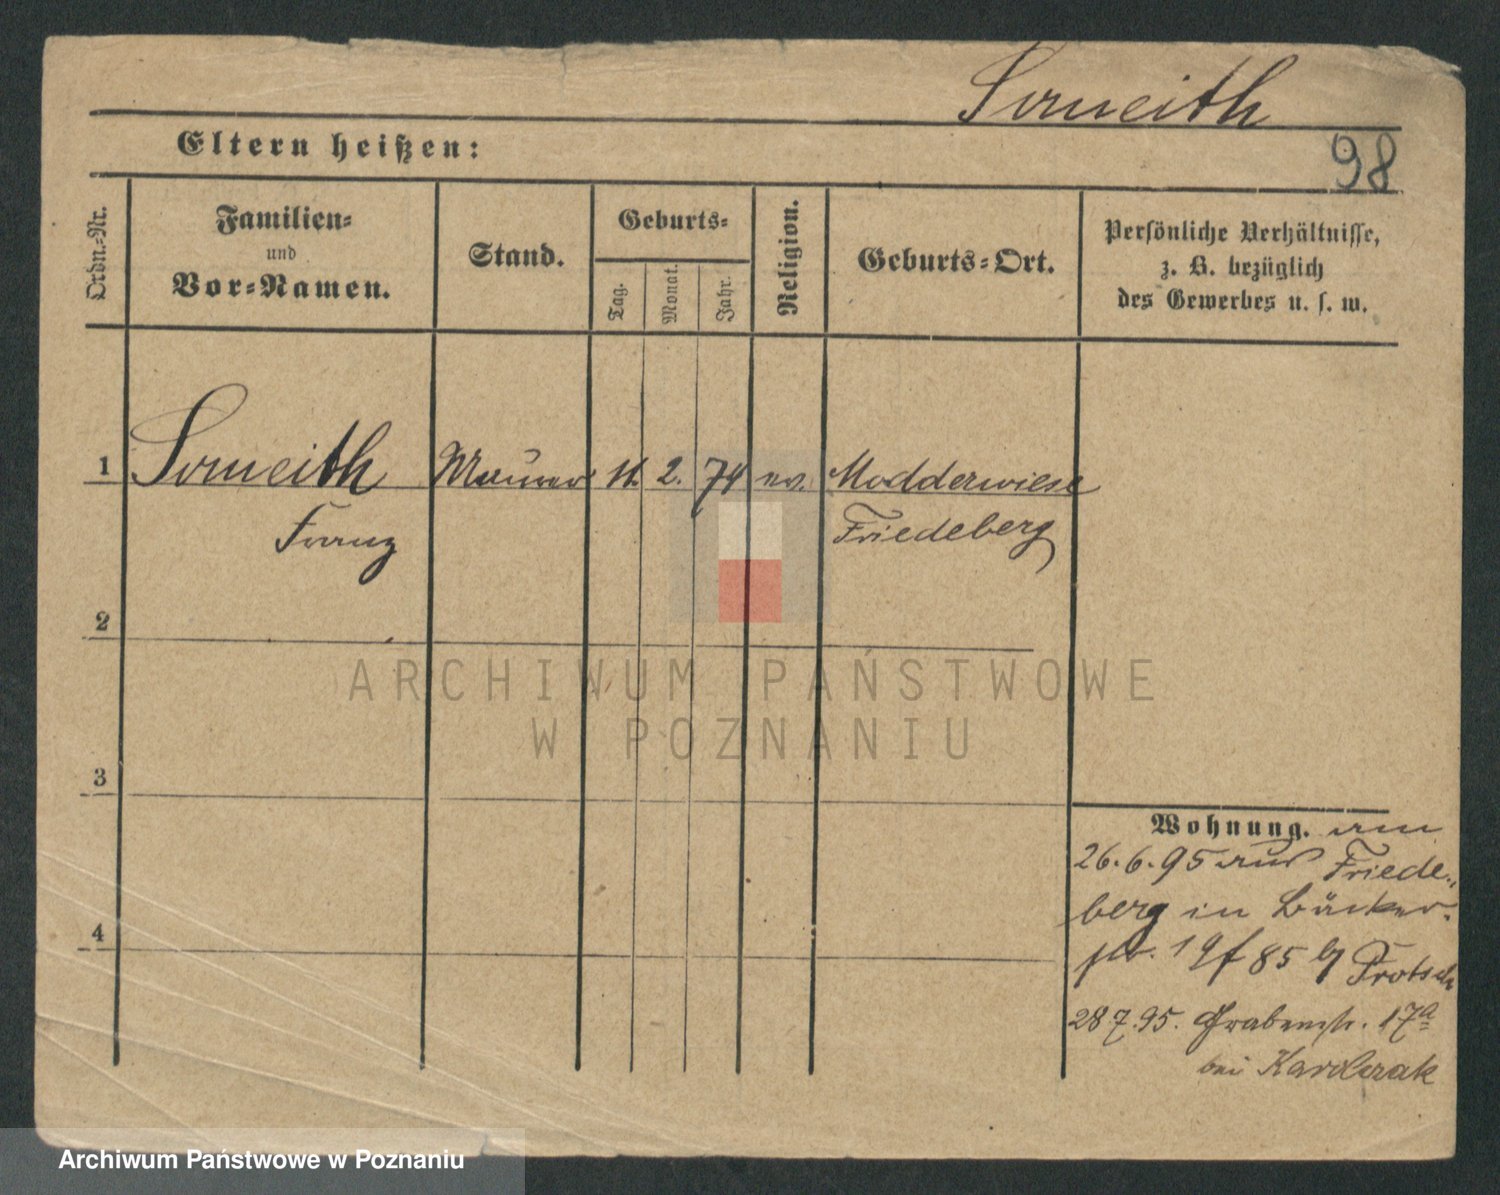 Someith
98
Eltern heißen:
Ordn.-Nr.
Familien-
und
Vor-Namen.
Stand.
Geburts-
Tag.
Monat.
Jahr.
Religion.
Geburts-Ort.
Persönliche Verhältnisse,
z. B. bezüglich
des Gewerbes u. s. w.
1 Someith Maurer 11. 2. 74 ev. Modderwiese
Franz Friedeberg
2
3
4
Wohnung. am
26.6.95 aus Friede-
berg in Bäcker-
str. 19 85 Frotsch
28 7.95. Grabenstr. 17a
bei
ARCHIWUM PAŃSTWOWE
W POZNANIU
Archiwum Państwowe w Poznaniu